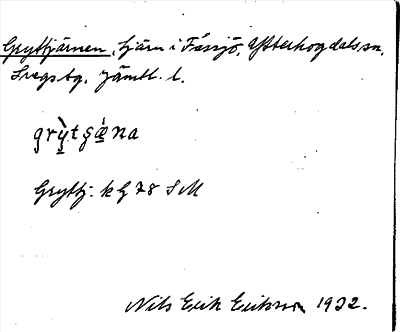 Gryttjärnen, tjärn i Fåssjö, Ytterhogdals sn,
Svegs tg. Jämtl. l.
grỳtɕæ̀na
Gryttj: k G 78 S M
Nils Erik Eriksson 1922.